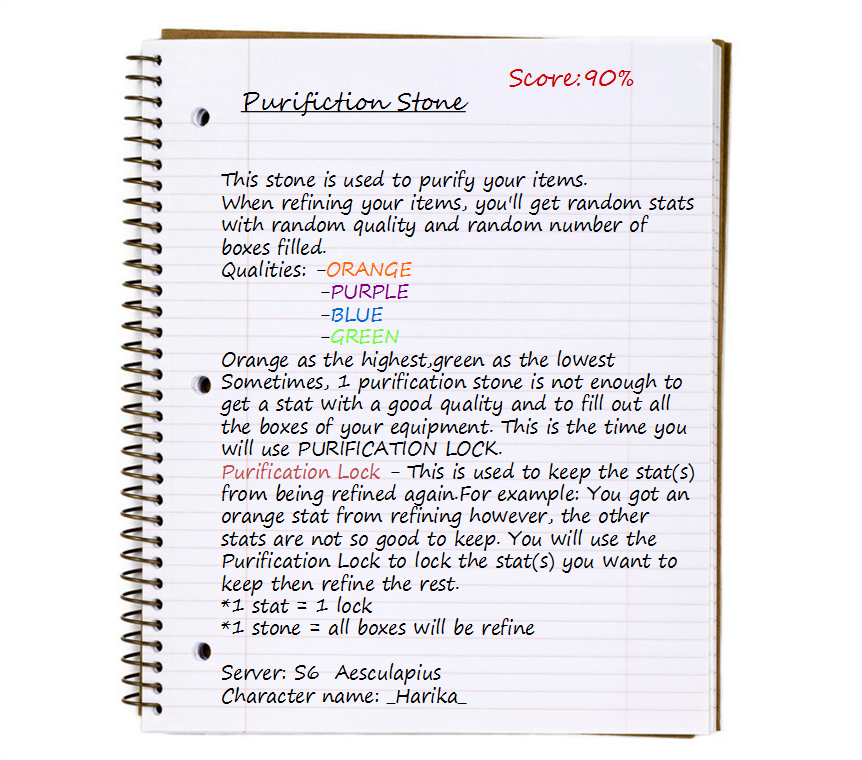 Score:90%
Purifiction Stone
This stone is used to purify your items.
When refining your items, you'll get random stats
with random quality and random number of
boxes filled.
Qualities: -ORANGE
-PURPLE
-BLUE
-GREEN
Orange as the highest,green as the lowest
Sometimes, 1 purification stone is not enough to
get a stat with a good quality and to fill out all
the boxes of your equipment. This is the time you
will use PURIFICATION LOCK.
Purification Lock - This is used to keep the stat(s)
from being refined again.For example: You got an
orange stat from refining however, the other
stats are not so good to keep. You will use the
Purification Lock to lock the stat(s) you want to
keep then refine the rest.
*1 stat = 1 lock
*1 stone = all boxes will be refine
Server: S6 Aesculapius
Character name: _Harika_